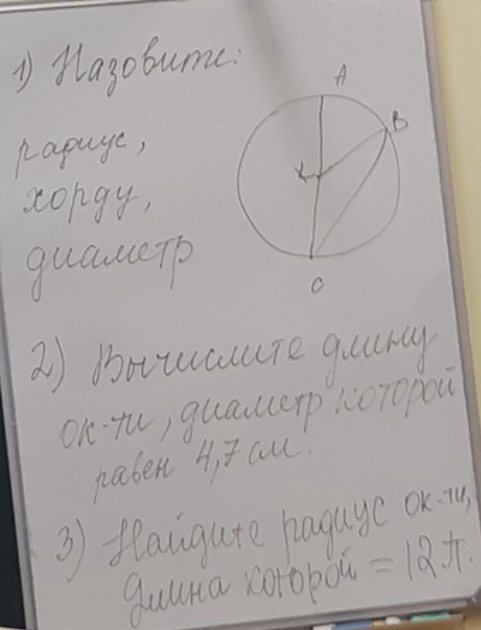 1) Назовите:
A
B
радиус,
K
хорду,
диаметр
O
2) Вычислите длину
ок-ти, диаметр которой
равен 4,7 см.
3) Найдите радиус ок-ти,
длина которой = 12π.